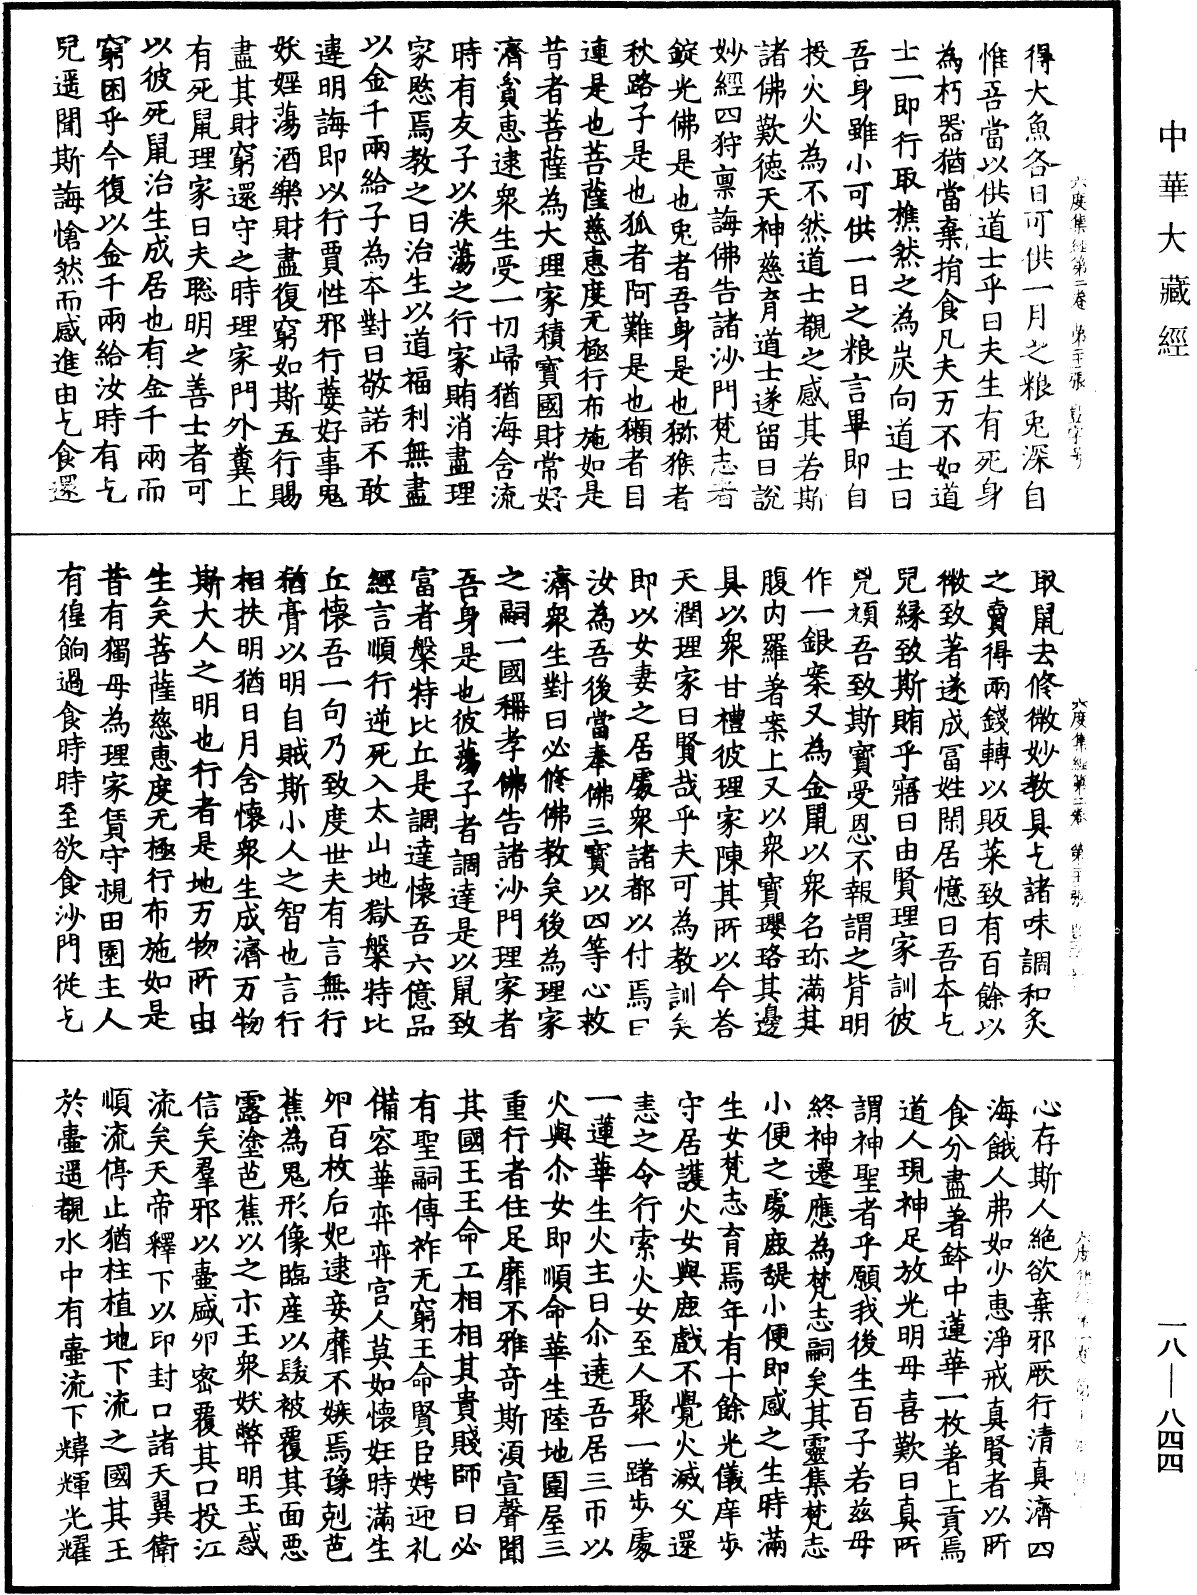 中華大藏經
得大魚各曰可供一月之粮兎深自
惟吾當以供道士乎曰夫生有死身
為朽器猶當棄捐食凡夫万不如道
士一即行取樵然之為炭向道士曰
吾身雖小可供一日之粮言畢即自
投火火為不然道士覩之感其若斯
諸佛歎德天神慈育道士遂留日說
妙經四狩禀誨佛告諸沙門梵志者
錠光佛是也兎者吾身是也猕猴者
秋路子是也狐者阿難是也獺者目
連是也菩薩慈惠度无極行布施如是
昔者菩薩為大理家積寶國財常好
濟貧惠逮衆生受一切歸猶海含流
時有友子以泆蕩之行家賄消盡理
家愍焉教之曰治生以道福利無盡
以金千兩給子為夲對曰敬諾不敢
違明誨即以行賈性邪行嬖好事鬼
妖婬蕩酒樂財盡復窮如斯五行賜
盡其財窮還守之時理家門外糞上
有死鼠理家曰夫聡明之善士者可
以彼死鼠治生成居也有金千兩而
窮困乎今復以金千兩給汝時有乞
兒遥聞斯誨愴然而感進由乞食還
取鼠去修微妙教具乞諸味調和炙
之賣得兩錢轉以販菜致有百餘以
微致著遂成冨姓閑居憶曰吾夲乞
兒縁致斯賄乎寤曰由賢理家訓彼
兇頑吾致斯寶受恩不報謂之背明
作一銀案又為金鼠以衆名珎滿其
腹内羅著案上又以衆寶瓔珞其邊
具以衆甘禮彼理家陳其所以今荅
天潤理家曰賢哉乎夫可為教訓矣
即以女妻之居處衆諸都以付焉曰
汝為吾後當奉佛三寶以四等心救
濟衆生對曰必修佛教矣後為理家
之嗣一國稱孝佛告諸沙門理家者
吾身是也彼蕩子者調達是以鼠致
富者槃特比丘是調達懷吾六億品
經言順行逆死入太山地獄槃特比
丘懷吾一句乃致度世夫有言無行
猶膏以明自賊斯小人之智也言行
相扶明猶日月含懷衆生成濟万物
斯大人之明也行者是地万物所由
生矣菩薩慈惠度无極行布施如是
昔有獨母為理家賃守視田園主人
有徨餉過食時時至欲食沙門從乞
心存斯人絶欲棄邪厥行清真濟四
海餓人弗如少惠淨戒真賢者以所
食分盡著鉢中蓮華一枚著上貢焉
道人現神足放光明母喜歎曰真所
謂神聖者乎願我後生百子若兹母
終神遷應為梵志嗣矣其靈集梵志
小便之處鹿䑛小便即感之生時滿
生女梵志育焉年有十餘光儀庠步
守居護火女與鹿戲不覺火滅父還
恚之令行索火女至人聚一躇步處
一蓮華生火主曰尒遶吾居三帀以
火與尒女即順命華生陸地圍屋三
重行者住足靡不雅竒斯湏宣聲聞
其國王王命工相相其貴賤師曰必
有聖嗣傳祚无窮王命賢臣娉迎礼
備容華弈弈宮人莫如懷妊時滿生
夘百枚后妃逮妾靡不嫉焉豫剋芭
蕉為鬼形像臨産以髲被覆其面惡
露塗芭蕉以之示王衆妖弊明王惑
信矣羣邪以壷盛夘密覆其口投江
流矣天帝釋下以印封口諸天翼衛
順流停止猶柱植地下流之國其王
於臺遥覩水中有壷流下韑輝光耀
一八—八四四